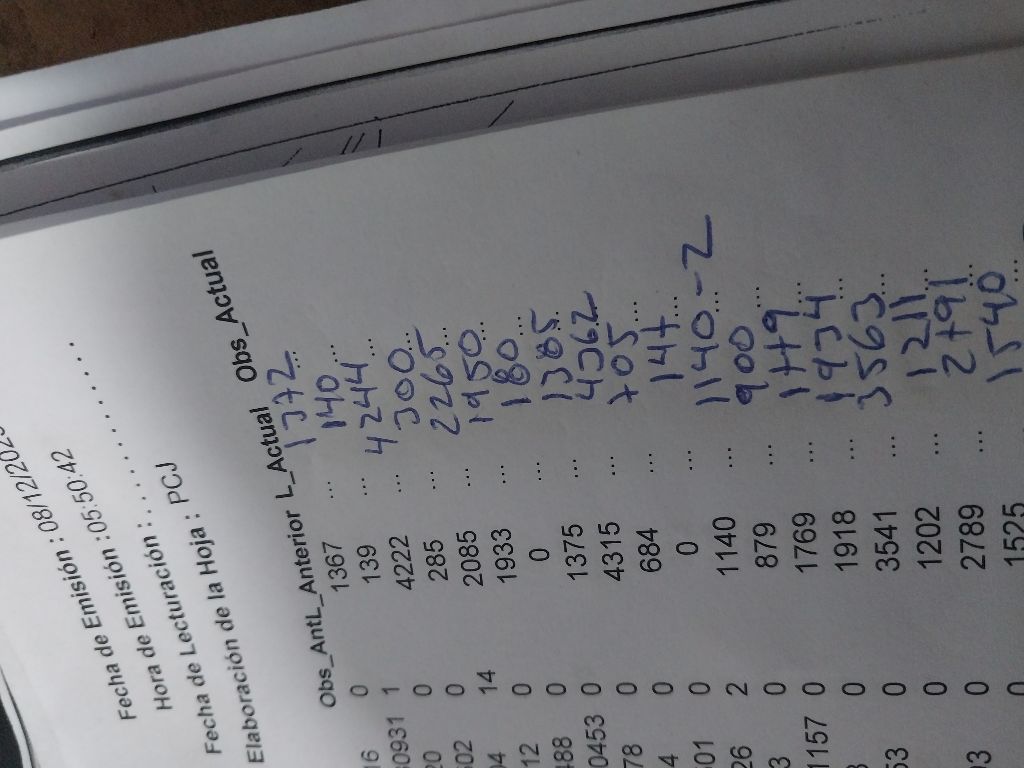 Fecha de Emisión : 08/12/202
Hora de Emisión : 05:50:42
Fecha de Lecturación : . . . . . . . . . . . .
Elaboración de la Hoja : PCJ
Obs_Ant L_Anterior L_Actual Obs_Actual
0 1367 ... 1372 ...
1 139 ... 140 ...
0 4222 ... 4244 ...
0 285 ... 300 ...
14 2085 ... 2265 ...
0 1933 ... 1950 ...
0 0 ... 180 ...
0 1375 ... 1385 ...
0 4315 ... 4362
0 684 ... 705 ...
0 0 ... 147 ...
2 1140 ... 1140 ... -2
0 879 ... 900 ...
0 1769 ... 1779 ...
0 1918 ... 1934 ...
0 3541 ... 3563 ...
0 1202 ... 1211 ...
0 2789 ... 2791 ...
0 1525 1540 ...